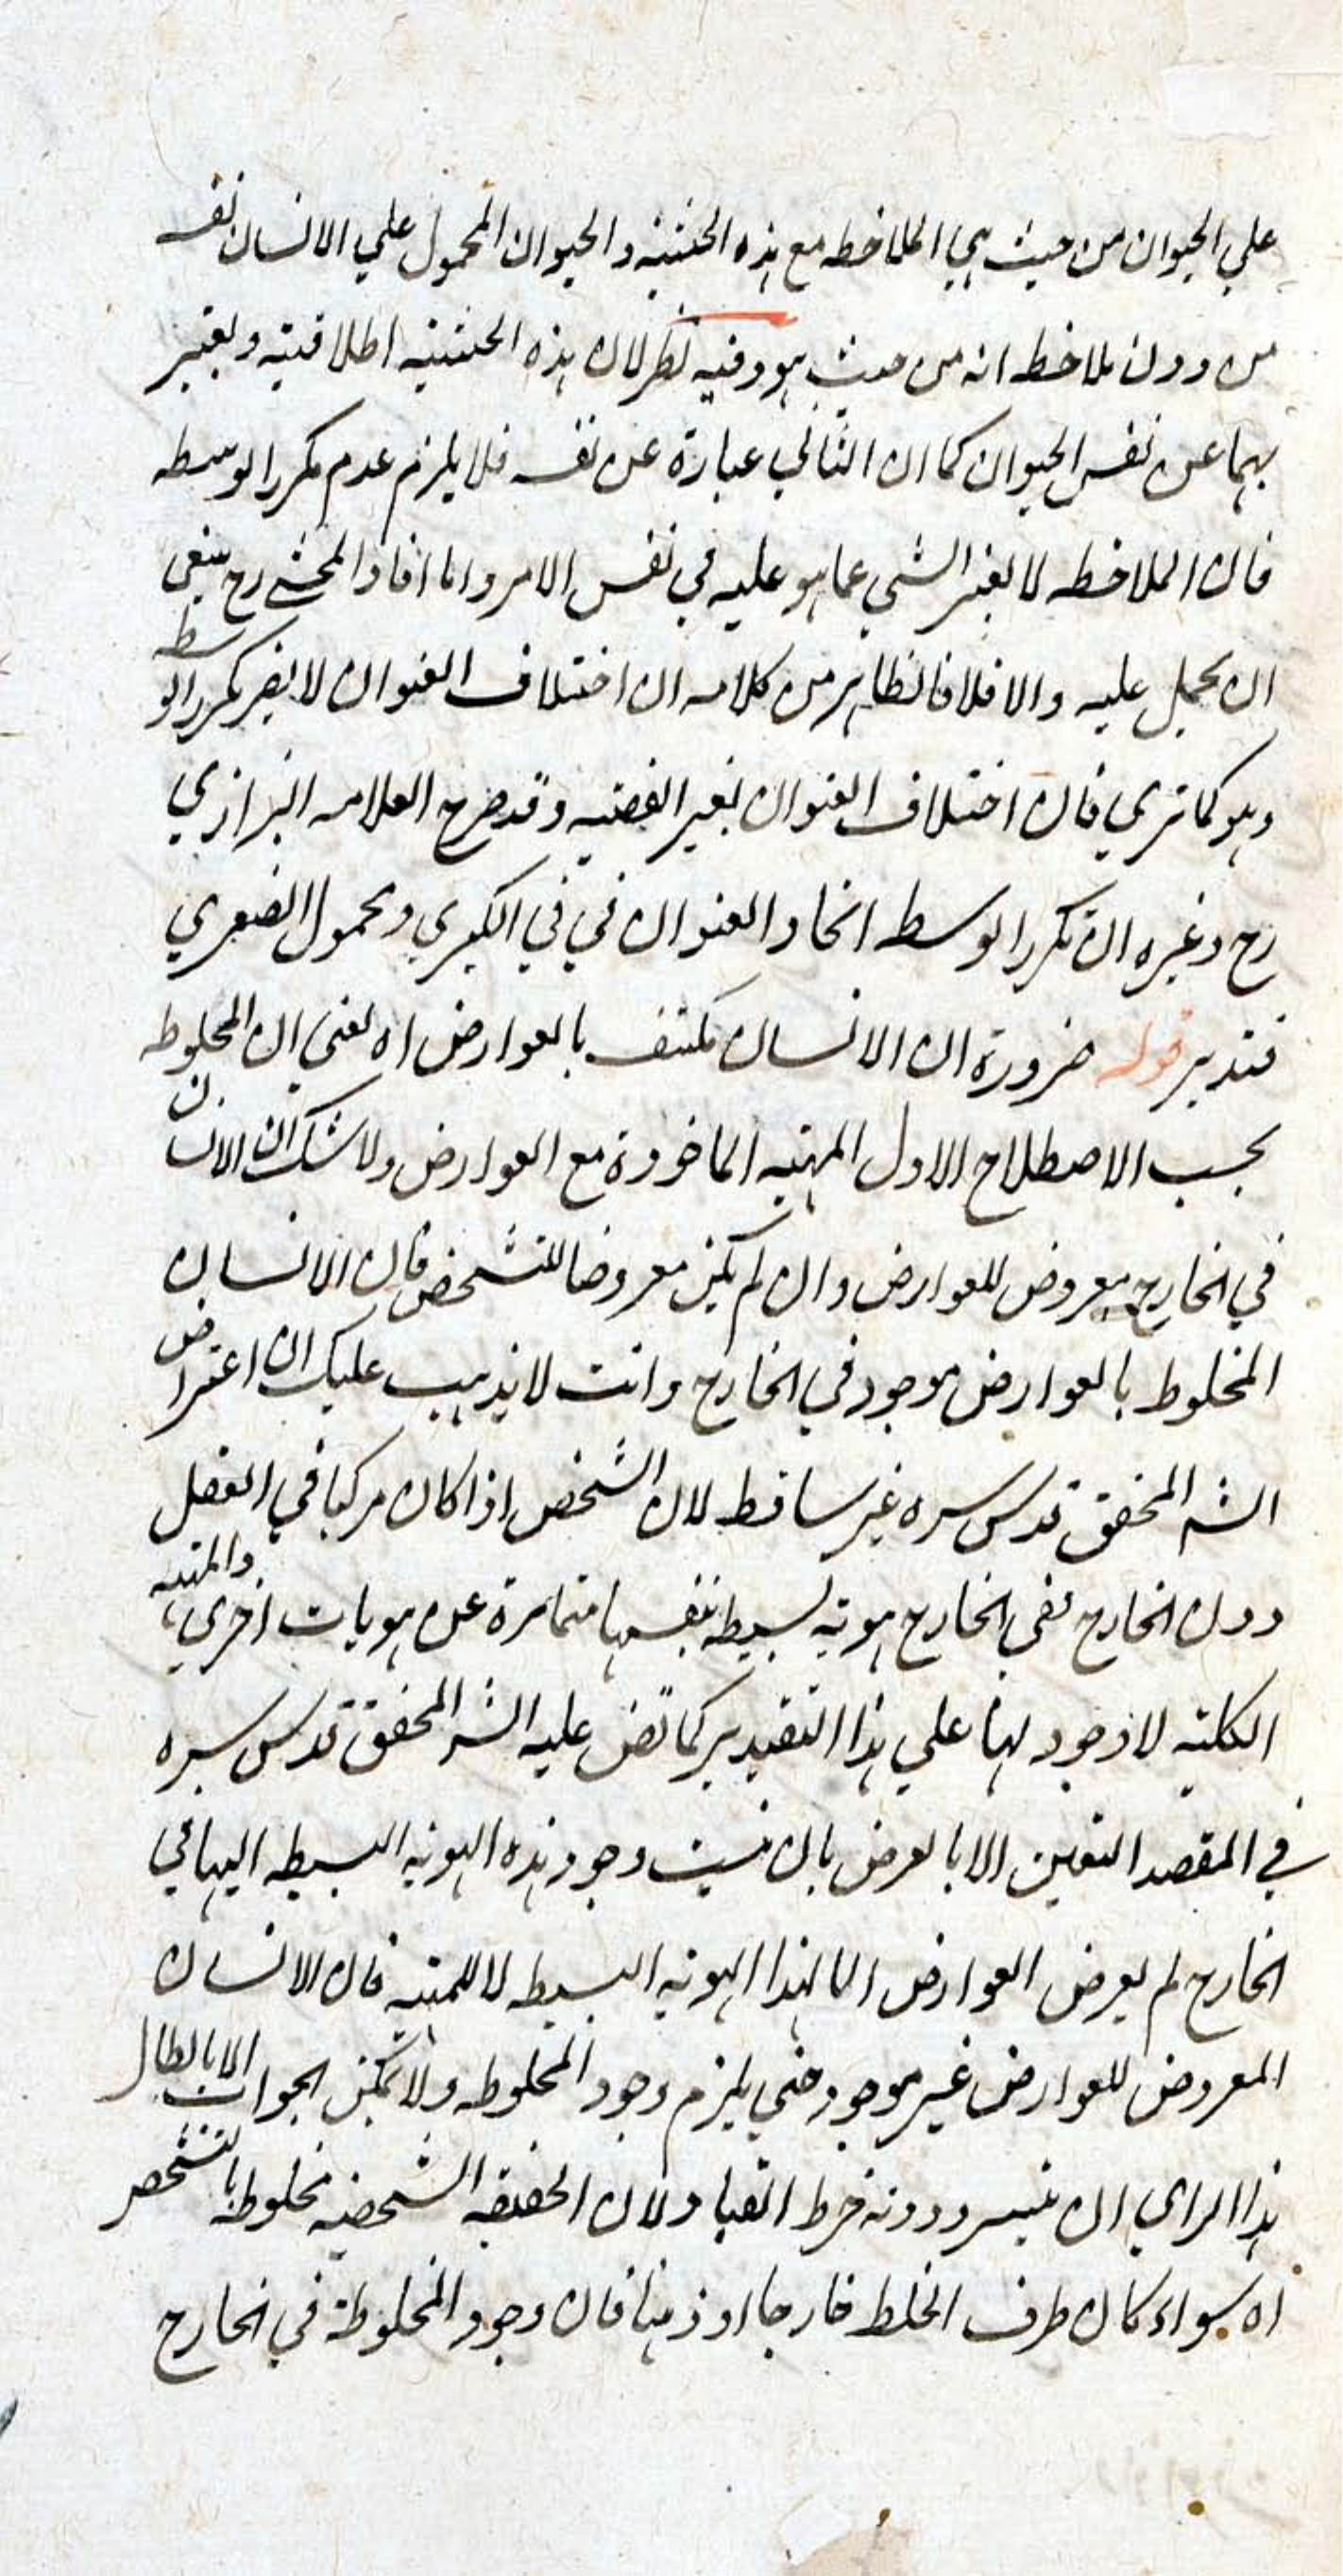 علي الحيوان من حيث هي الملاحظه مع هذه الحيثيه والحيوان المحمول علي الانسان نفسه
من دون ملاحظه انه من حيث هو وفيه نظر لان هذه الحيثيه اطلاقيه ويعتبر
بهما عن نفس الحيوان كما ان الثاني عبارة عن نفسه فلا يلزم عدم تكرر الوسطه
فان الملاحظه لا يغير الشي عما هو عليه في نفس الامر واما افاد المحشي رح ينبغي
ان يحمل عليه والا فلا فالظاهر من كلامه ان اختلاف العنوان لا يضر تكرر الوسطه
وهو كما تري فان اختلاف العنوان يغير القضيه وقد صرح العلامه الشيرازي
رح وغيره ان تكرر الوسطه اتحاد العنوان في في الكبري ومحمول الصغري
فتدبر قوله ضرورة ان الانسان مكتنف بالعوارض اه يعني ان المخلوطه
بحسب الاصطلاح الاول المهيه الماخوذة مع العوارض ولا شك ان الانسان
في الخارج معروض للعوارض وان لم يكن معروضا للتشخص فان الانسان
المخلوط بالعوارض موجود في الخارج وانت لا يذهب عليك ان اعتراض
الشر المحقق قدس سره غير ساقط لان الشخص اذا كان مركبا في العقل
دون الخارج ففي الخارج هويه بسيطه بنفسها متمايزة عن هويات اخري والمهيه
الكليه لا وجود لها علي هذا التقدير كما نص عليه الشر المحقق قدس سره
في المقصد التعين الا بالعرض بان ينسب وجود هذه الهويه البسيطه اليها في
الخارج لم يعرض العوارض الا لهذا الهويه البسيطه لا للمهيه فان الانسان
المعروض للعوارض غير موجود حتي يلزم وجود المخلوطه ولا يمكن الجواب الا بابطال
هذا الراي ان تيسر ودونه خرط القتاد ولان الحقيقه الشخصيه مخلوطه بالتشخص
اه سواء كان ظرف الخلط خارجا او ذهنا فان وجود المخلوطة في الخارج